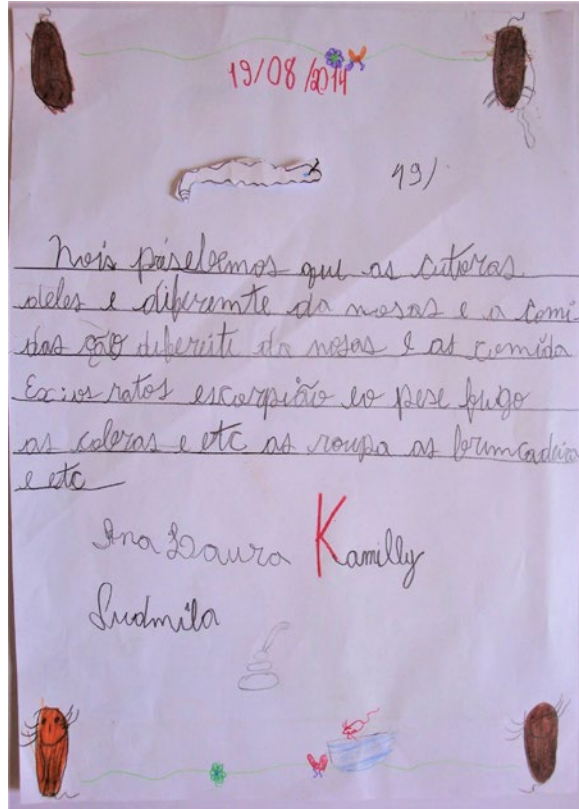 19/08/2014
19/
Nois préselbemos que as cuturas
deles e diferemte da nosas e a comi-
das são diferēte da nosas e as comida
Ex: os ratos escorpião eo pese fugo
as cobras e etc as roupa as brimcadeira
e etc
Ana Laura Kamilly
Ludmila